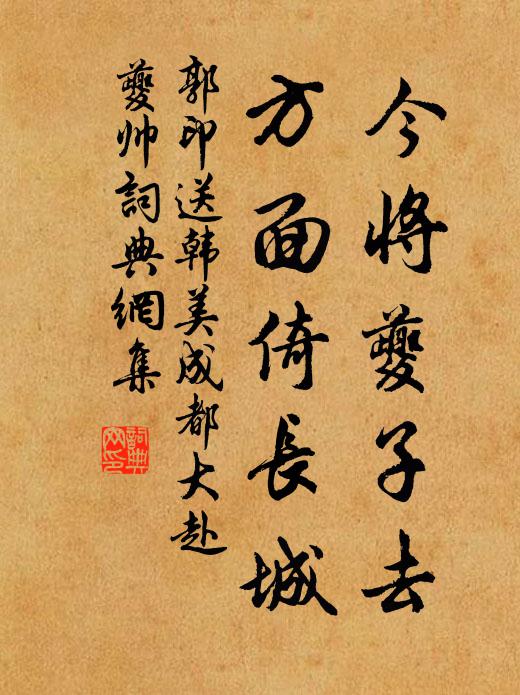 今将夔子去
方面倚長城
郭印送韩美成都大赴
夔帅詞典網集
詞典
网印